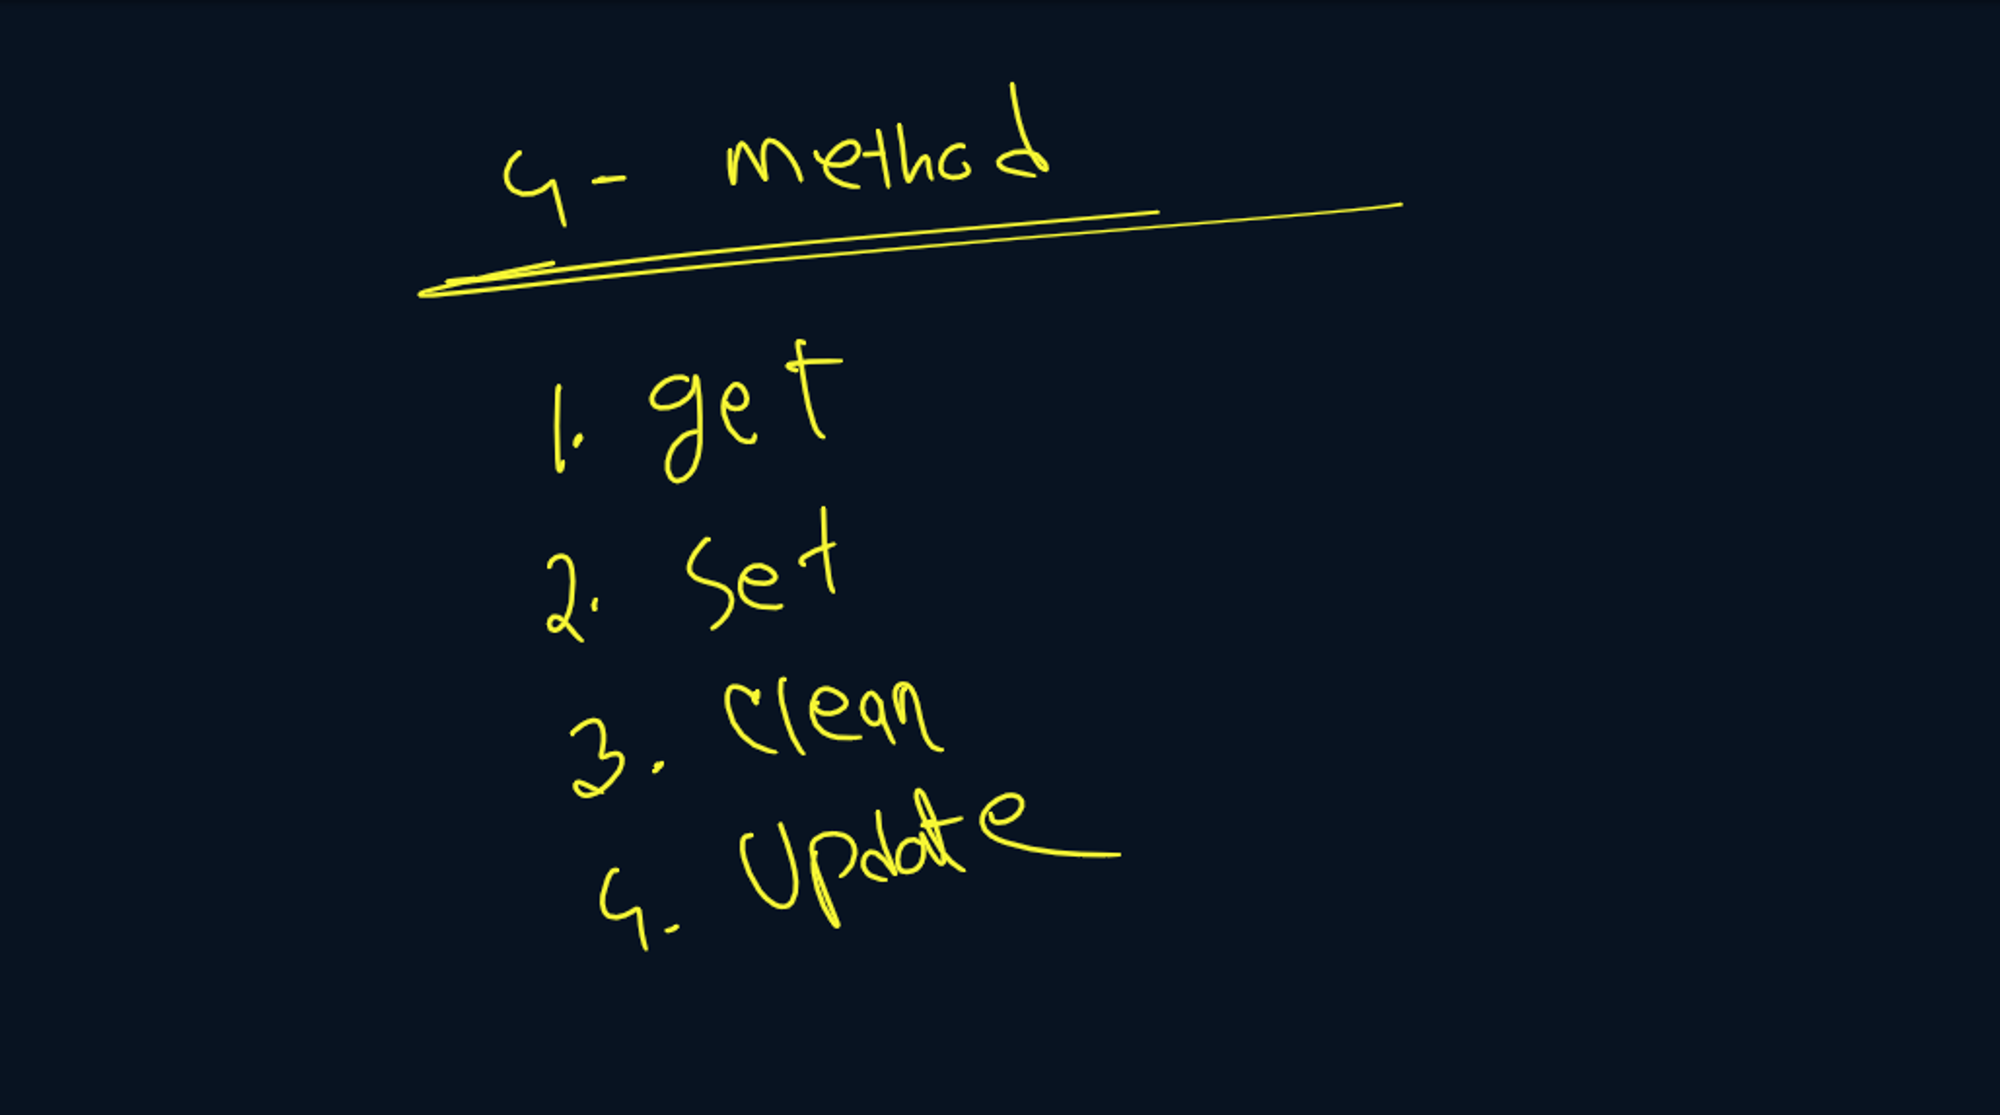 4- method
1. get
2. Set
3. Clean
4. Update